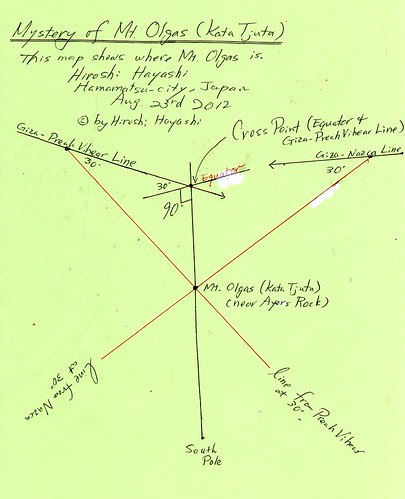 Mystery of Mt. Olgas (Kata Tjuta)
This map shows where Mt. Olgas is.
Hiroshi Hayashi
Hamamatsu-city, Japan
Aug. 23rd 2012
© by Hiroshi Hayashi
Cross Point (Equator &
Giza-Preah Vihear Line)
Giza-Preah Vihear Line
30°
Giza-Nazca Line
30°
Equator
30°
90°
Mt. Olgas (Kata Tjuta)
(near Ayers Rock)
Line from Nazca
at 30°
Line from Preah Vihear
at 30°
South
Pole